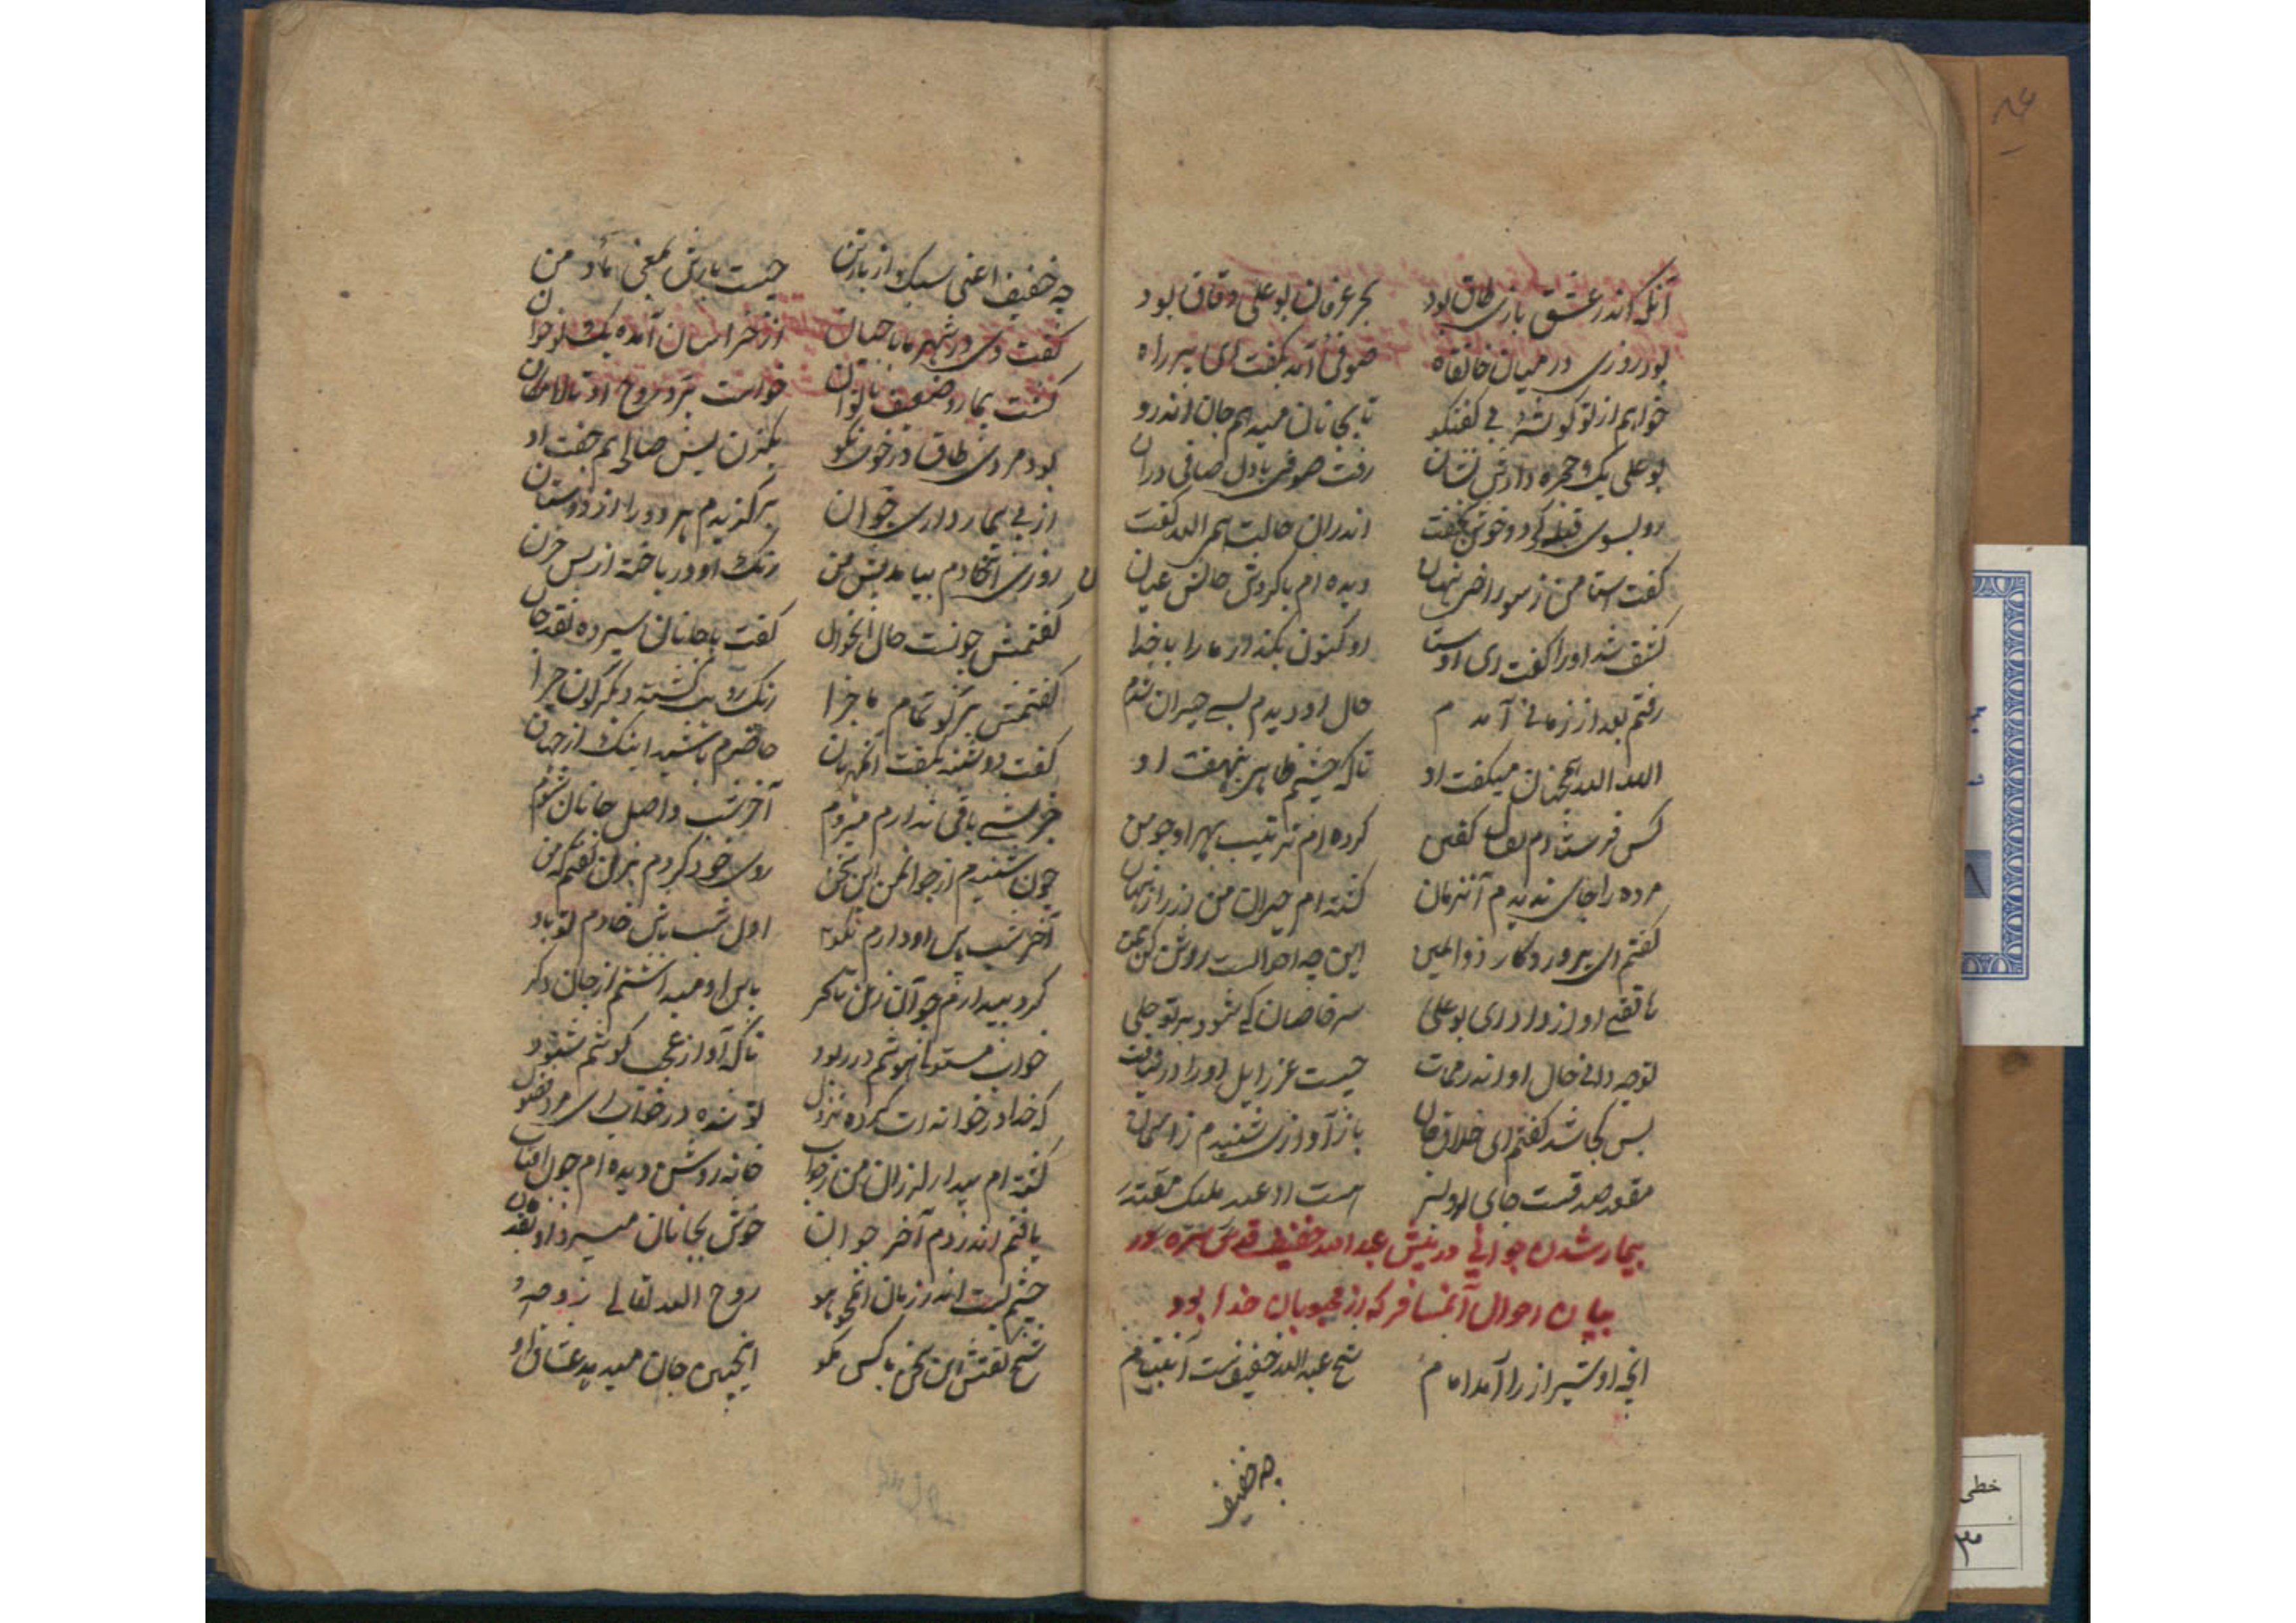 آنکه اندر عشق بازی طاق بود بحر عرفان بو علی دقاق بود
بود روزی در میان خانقاه صوفی آمد بگفت ای پیر راه
خواهم از تو گوشهٔ بی گفتگو تا بجانان میدهم جان اندرو
بو علی یک حجره دادش نشان رفت صوفی با دل صافی دران
رو بسوی قبله کرد و خوش بخفت اندران حالت همی الله گفت
گفت استا من ز سوراخی نهان دیده ام باکردش حالش عیان
کشف شد او را گفت ای اوستا او کنون بگذار ما را با خدا
رفتم بعد از زمانی آمدم حال او دیدم بسی حیران شدم
الله الله همچنان میگفت او تا که چشم ظاهری بنهفت او
کس فرستادم کفن کرده ام ترتیب بهر او چو من
مرده را جای ندیدم آنزمان گشته ام حیران من از راز نهان
گفتم ای پروردگار ذوالمنن این چه احوالست روشن کن بمن
هاتفی آواز داد ای بو علی سر خاصان کی شود بر تو جلی
تو چه دانی حال او اندر ممات چیست عزرایل او را در نیافت
پس کجا شد گفتم ای خلاق جان باز آوازی شنیدم ز آسمان
مقعد صدقست جای او هست او عند ملیک مقتدر
بیمار شدن جوانی در پیش عبدالله خفیف قدس سره و
بیان احوال آنمسافر که از محبوبان خدا بود
آنچه او شیراز را آمد امام شیخ عبدالله خفیفست آنش نام
چه خفیف
چه خفیف اعنی سبک از بار تن چیست بارش یعنی ما و من
گفت دی در شهر ما با جهان از خراسان آمده یک نوجوان
گشت بیمار و ضعیف ناتوان خواست برد روح او تا لامکان
بود مردی طاق در خوی نکو یکزن پس صالح هم جفت او
از پی بیمار داری جوان برگزیدم هر دو را از دوستان
روزی آنخادم بیامد پیش من رنگ او در باخته از بس حزن
گفتمش چونست حال آنجوان گفت با جانان سپرده نقد جان
گفتمش برگو تمام ماجرا رنگ رویت گشته دیگرگون چرا
گفت دوشینه بگفت آنمهربان حاضرم باشید اینک از جهان
جز شبی باقی ندارم میروم آخر شب واصل جانان شوم
چون شنیدم از جوانمن این سخن روی خود کردم بزن گفتم که من
آخر شب پاس او دارم نکو اول شب باش خادم تو باو
کرد بیدارم چو آن زن تا سحر پاس او میداشتم از جان دگر
خواب مستوتا هوشم در ربود ناگه آواز عجب گوشم شنود
که خدا در خوانه ات کرده نزول تو شده در خواب ای مرد فضول
گشته ام بیدار لرزان من ز خواب خانه روشن دیده ام چون آفتاب
یافتم اندر دم آخر جوان خوش بجانان میسپرد او نقد جان
چشم بست اندر زمان آنمجو روح الله تعالی روحه
شیخ گفتش این سخن با کس مگو اینچنین جان میدهد عشاق او
خطی